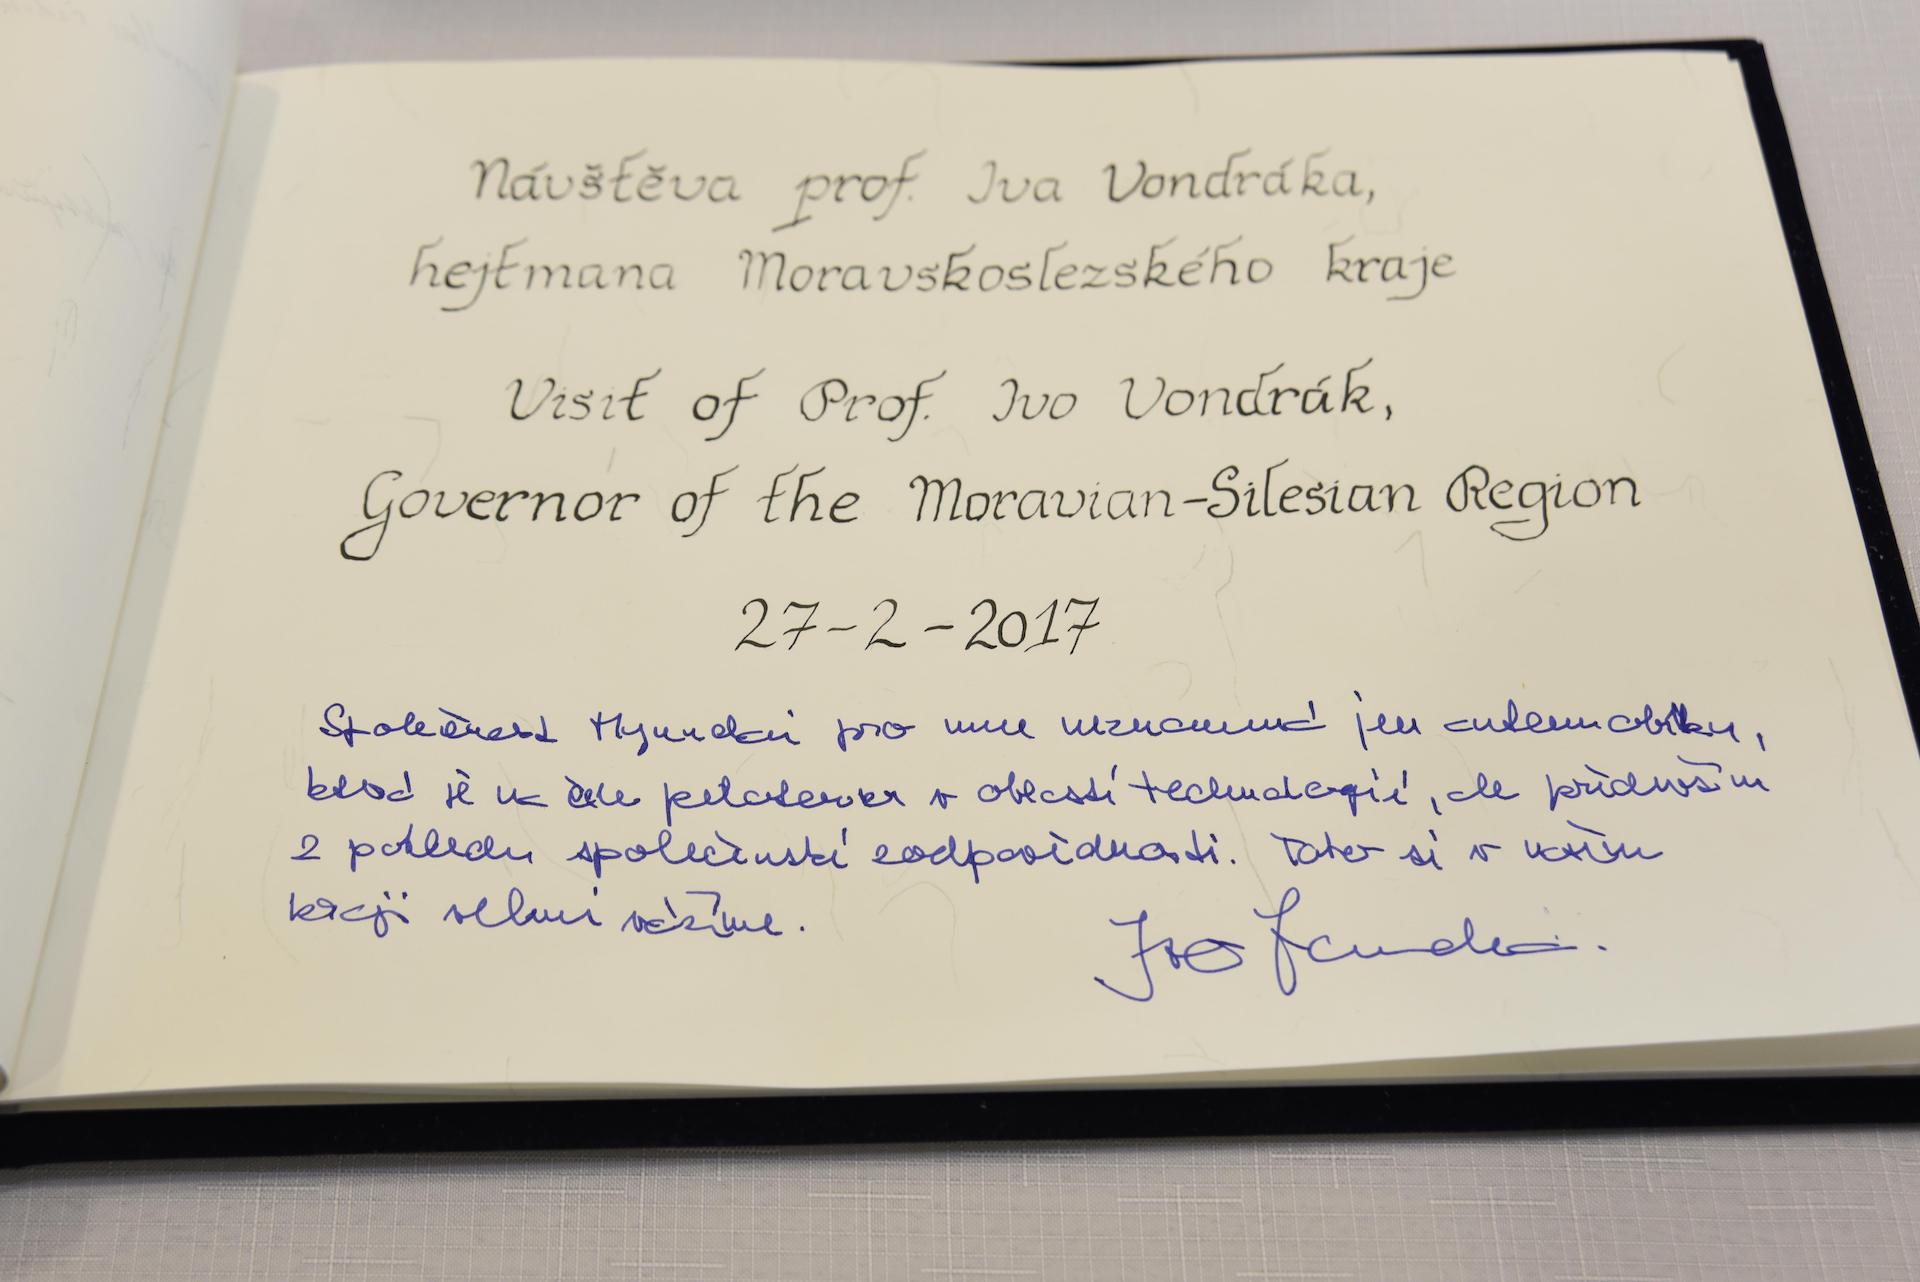 Návštěva prof. Iva Vondráka,
hejtmana Moravskoslezského kraje
Visit of Prof. Ivo Vondrák,
Governor of the Moravian-Silesian Region
27-2-2017
Společnost Hyundai pro mne neznamená jen automobilku,
která je na čele v oblasti technologií, ale
z pohledu společenské zodpovědnosti. Toho si v našem
kraji velmi vážíme.
Ivo